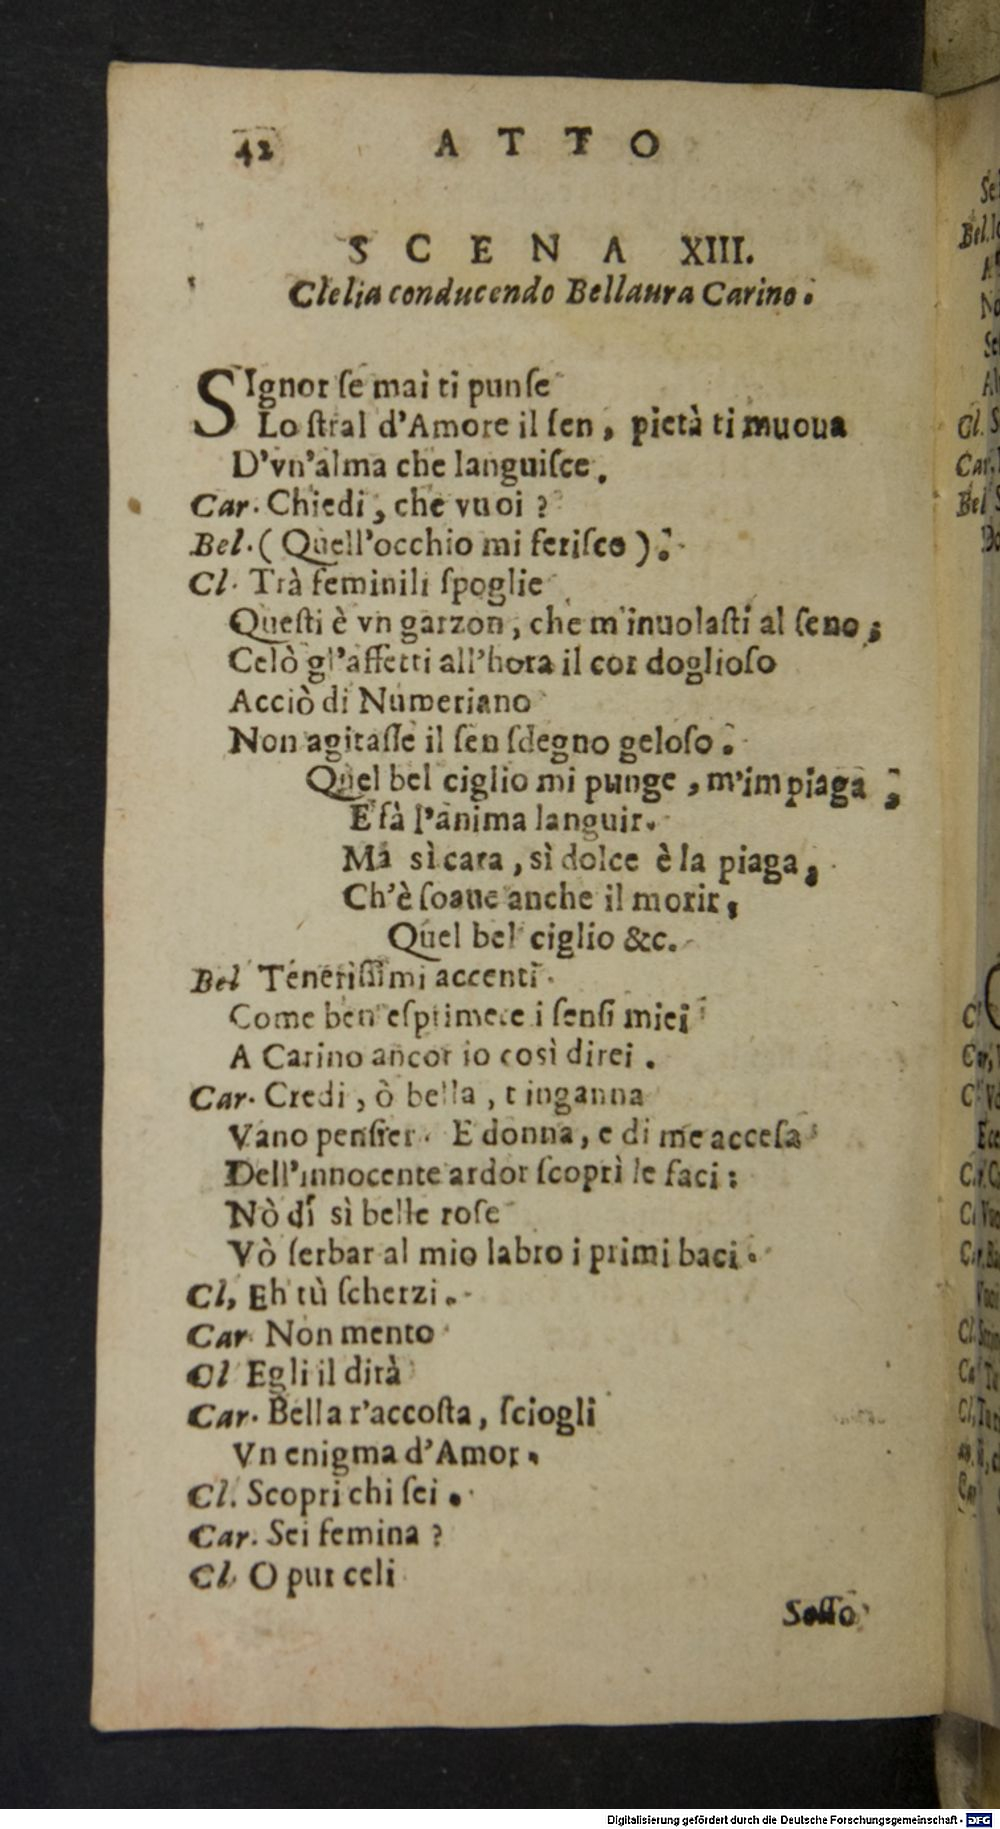 42 ATTO
SCENA XIII.
Clelia conducendo Bellaura Carino.
SIgnor ſe mai ti punſe
Lo ſtral d'Amore il ſen, pietà ti muoua
D'vn'alma che languiſce.
Car. Chiedi, che vuoi?
Bel. (Quell'occhio mi feriſce).
Cl. Trà feminili ſpoglie
Queſti è vn garzon, che m'inuolaſti al ſeno;
Celò gl'affetti all'hora il cor doglioſo
Acciò di Numeriano
Non agitaſſe il ſen ſdegno geloſo.
Quel bel ciglio mi punge, m'impiaga;
E fà l'anima languir.
Ma sì cara, sì dolce è la piaga,
Ch'è ſoaue anche il morir,
Quel bel ciglio &c.
Bel Teneriſſimi accenti
Come ben eſprimete i ſenſi miei
A Carino ancor io così direi.
Car. Credi, ò bella, t inganna
Vano penſier. E donna, e di me acceſa
Dell'innocente ardor ſcoprì le faci:
Nò dì sì belle roſe
Vò ſerbar al mio labro i primi baci.
Cl, Eh tù ſcherzi.
Car Non mento
Cl Egli il dirà
Car. Bella t'accoſta, ſciogli
Vn enigma d'Amor.
Cl. Scopri chi ſei.
Car. Sei femina?
Cl. O pur celi
Sotto
Se
Bel. Io
A
No
Se
Al
Cl. S
Car.
Bel S
Do
C
Car,
C Vo
Ecc
Car. C
Cl Vuo
Car. Ba
Vuoi
Cl.
Ca Tu
Cl, Tu
Car
Digitalisierung gefördert durch die Deutsche Forschungsgemeinschaft - DFG